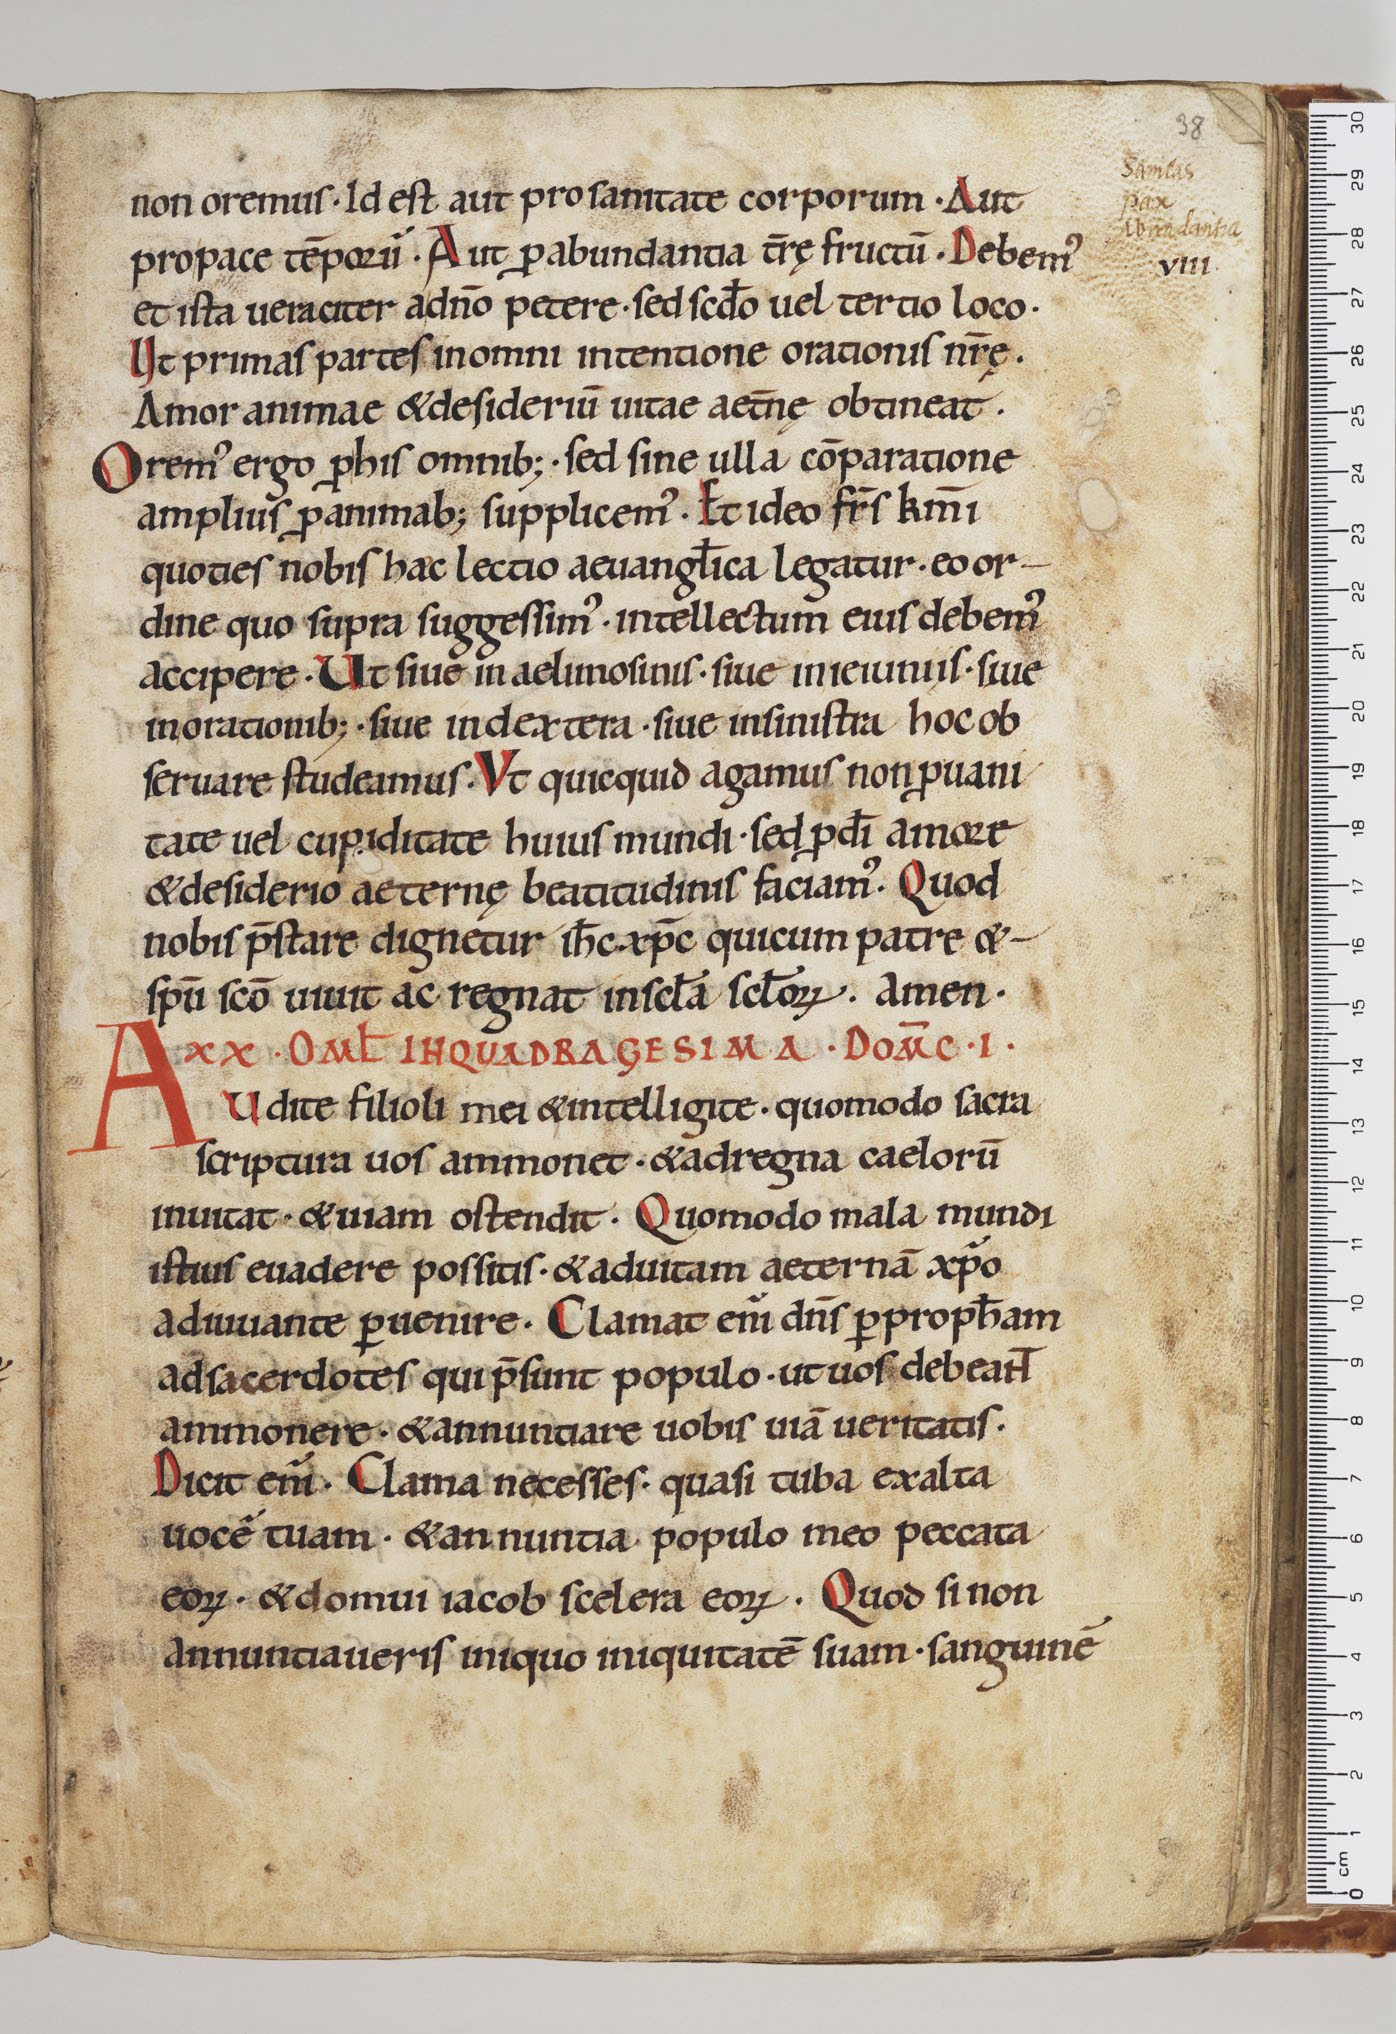 38
Sanitas
pax
Abundantia
VIII
non oremus · Id est aut pro sanitate corporum · Aut
propace tēporū · Aut ꝑabundantia t̄rę fructū · Debem᾿
et ista ueraciter adnō petere · sed scd̄o uel tertio loco ·
Ut primas partes inomni intentione orationis nr̄ę ·
Amor animae &desideriū uitae aet̄nę obtineat ·
Orem᾿ ergo ꝑhis omnib; · sed sine ulla cōparatione
amplius ꝑanimab; supplicem᾿ · Et ideo fr̄s km̄i
quoties nobis hac lectio aeuangl̄ica legatur · eo or-
dine quo supra suggessim᾿ · intellectum eius debem᾿
accipere · Ut siue in aelimosinis · siue inieiuniis · siue
inorationib; · siue indextera · siue insinistra hoc ob
seruare studeamus · Vt quicquid agamus non ꝑuani
tate uel cupiditate huius mundi · sed ꝑdī amore
&desiderio aeternę beatitudinis faciam᾿ · Quod
nobis p̄stare dignetur ih̄c xp̄c quicum patre &-
spū scō uiuit ac regnat inscl̄a scl̄oꝝ · amen ·
XX · OML̄ INQUADRAGESIMA · DOM̄C · I ·
AUdite filioli mei &intelligite · quomodo sacra
scriptura uos ammonet · &adregna caelorū
inuitat · &uiam ostendit · Quomodo mala mundi
istius euadere possitis · &aduitam aeternā xp̄o
adiuuante ꝑuenire · Clamat eni dn̄s ꝑproph̄am
adsacerdotes qui p̄sunt populo · ut uos debeaNT
ammonere · &annuntiare uobis uiā ueritatis ·
Dicit eni · Clama necesses · quasi tuba exalta
uocē tuam · &annuntia populo meo peccata
eoꝝ · &domui iacob scelera eoꝝ · Quod si non
annuntiaueris iniquo iniquitatē suam · sanguinē
30
29
28
27
26
25
24
23
22
21
20
19
18
17
16
15
14
13
12
11
10
9
8
7
6
5
4
3
2
1
cm
0